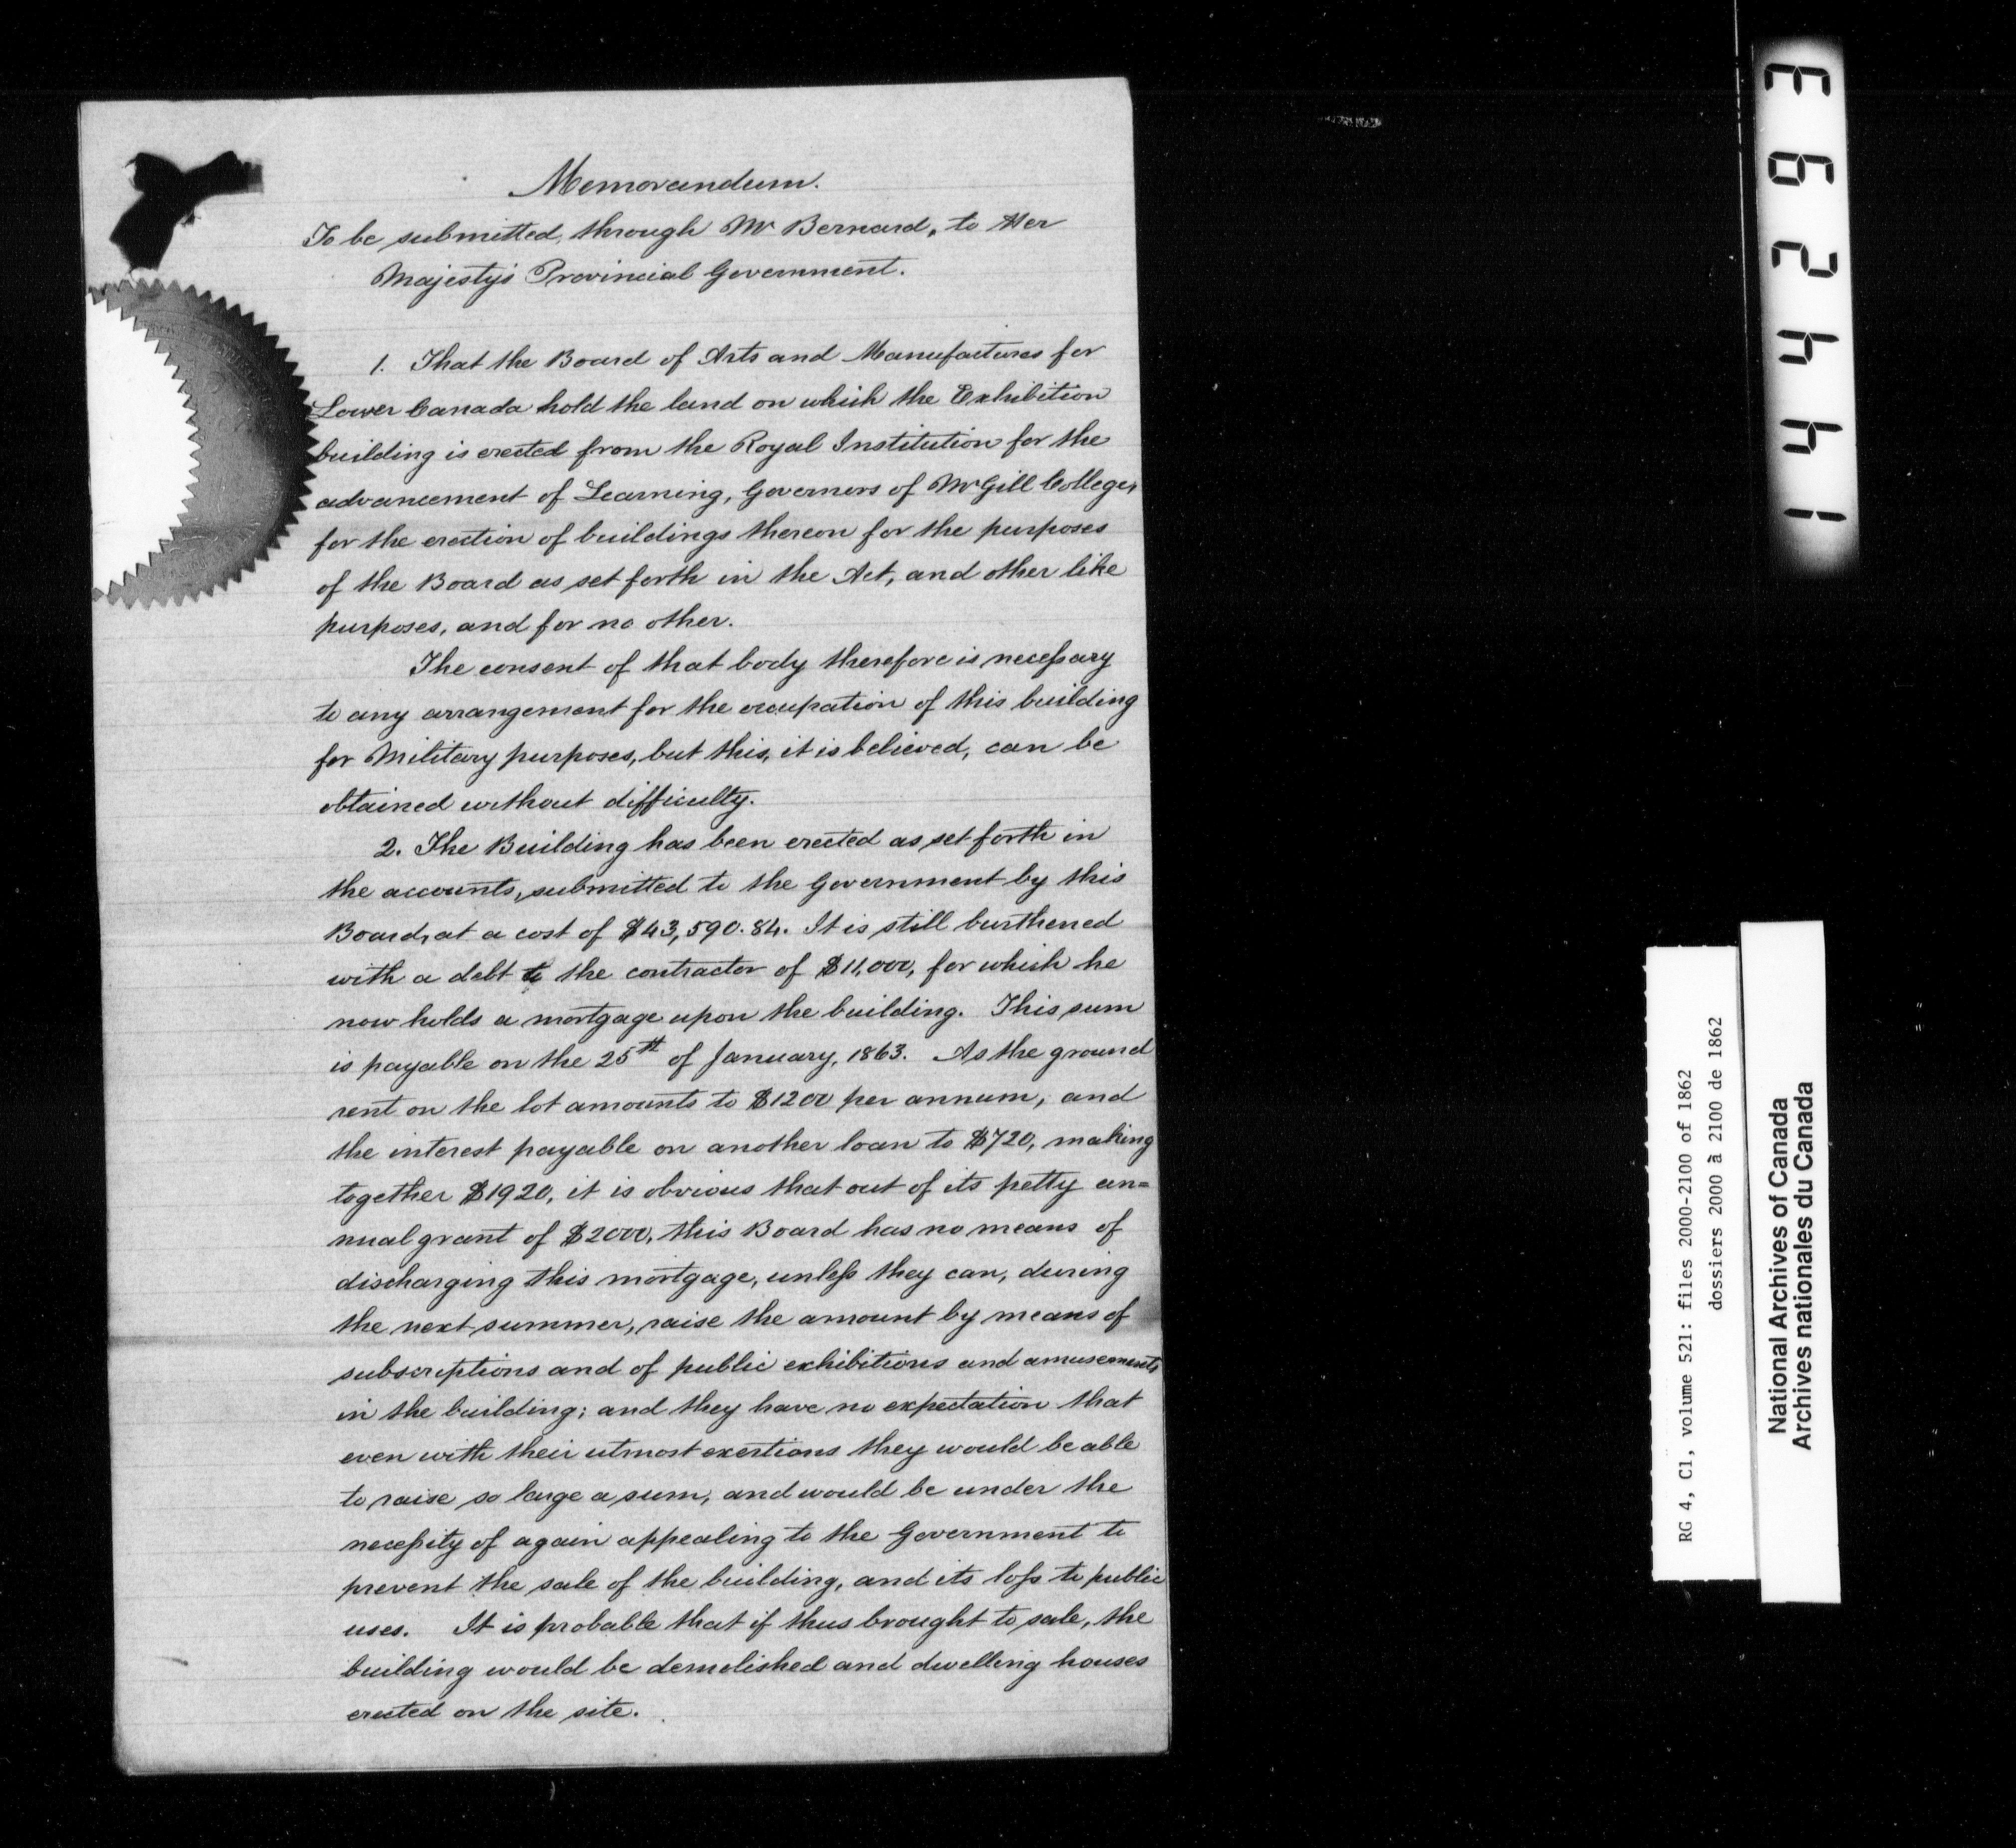 Memorandum.
To be submitted, through Mr Bernard, to Her
Majesty's Provincial Government.
1. That the Board of Arts and Manufactures for
Lower Canada hold the land on which the Exhibition
building is erected from the Royal Institution for the
advancement of Learning, Governors of McGill College,
for the erection of buildings thereon for the purposes
of the Board as set forth in the Act, and other like
purposes, and for no other.
The consent of that body therefore is necessary
to any arrangement for the occupation of this building
for Military purposes, but this, it is believed, can be
obtained without difficulty.
2. The Building has been erected as set forth in
the accounts, submitted to the Government by this
Board, at a cost of $43,590.84. It is still burthened
with a debt to the contractor of $11,000, for which he
now holds a mortgage upon the building. This sum
is payable on the 25th of January, 1863. As the ground
rent on the lot amounts to $1200 per annum, and
the interest payable on another loan to $720, making
together $1920, it is obvious that out of its petty an=
nual grant of $2000, this Board has no means of
discharging this mortgage, unless they can, during
the next summer, raise the amount by means of
subscriptions and of public exhibitions and amusements
in the building; and they have no expectation that
even with their utmost exertions they would be able
to raise so large a sum, and would be under the
necessity of again appealing to the Government to
prevent the sale of the building, and its loss to public
uses. It is probable that if thus brought to sale, the
building would be demolished and dwelling houses
erected on the site.
144293
RG 4, C1, volume 521: files 2000-2100 of 1862
dossiers 2000 à 2100 de 1862
National Archives of Canada
Archives nationales du Canada